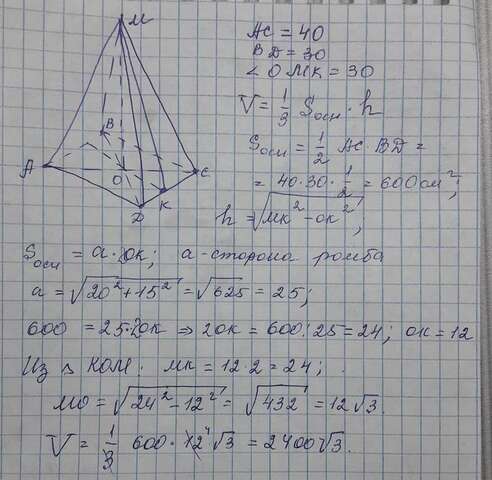 M
A
B
O
D
K
C
AC = 40
BD = 30
∠OMK = 30
V = 1/3 Sосн · h
Sосн = 1/2 AC BD =
= 40·30·1/2 = 600 см²;
h = √(MK² - OK²);
Sосн = a · 2OK; a - сторона ромба
a = √(20² + 15²) = √625 = 25;
600 = 25·2OK ⇒ 2OK = 600:25 = 24; OK = 12
Из Δ KOM: MK = 12·2 = 24;
MO = √(24² - 12²) = √432 = 12√3
V = 1/3 · 600 · 12 √3 = 2400√3.